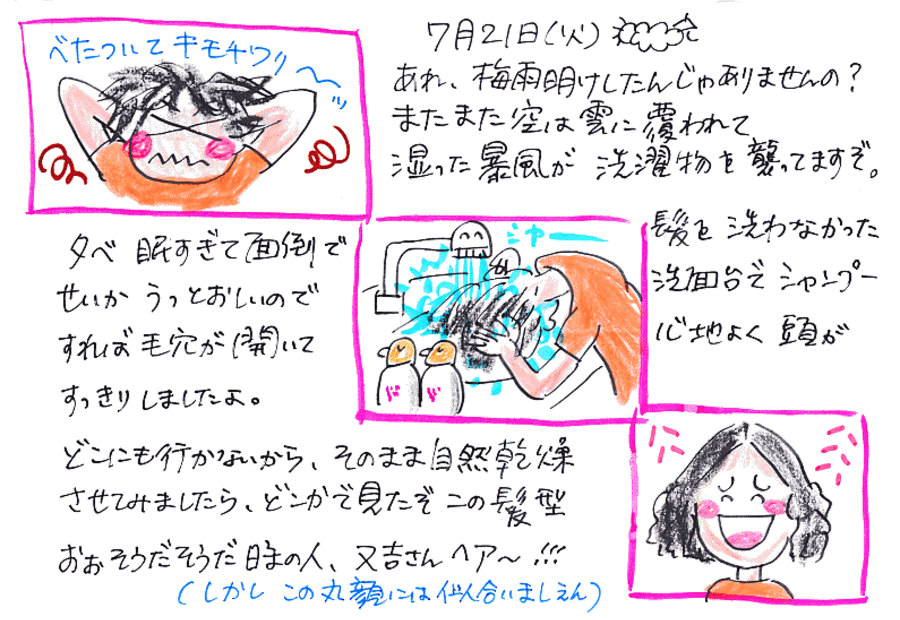 べたついてキモチワリ〜ッ
7月21日(火)
あれ、梅雨明けしたんじゃありませんの？
またまた空は雲に覆われて
湿った暴風が 洗濯物を襲ってますぞ。
シャー
夕べ 眠すぎて面倒で 髪を洗わなかった
せいか うっとおしいので 洗面台でシャンプー
すれば毛穴が開いて 心地よく頭が
すっきりしましたよ。
どこにも行かないから、そのまま自然乾燥
させてみましたら、どこかで見たぞこの髪型
おぉそうだそうだ 時の人、又吉さんヘア〜!!!
(しかしこの丸顔には似合いましぇん)